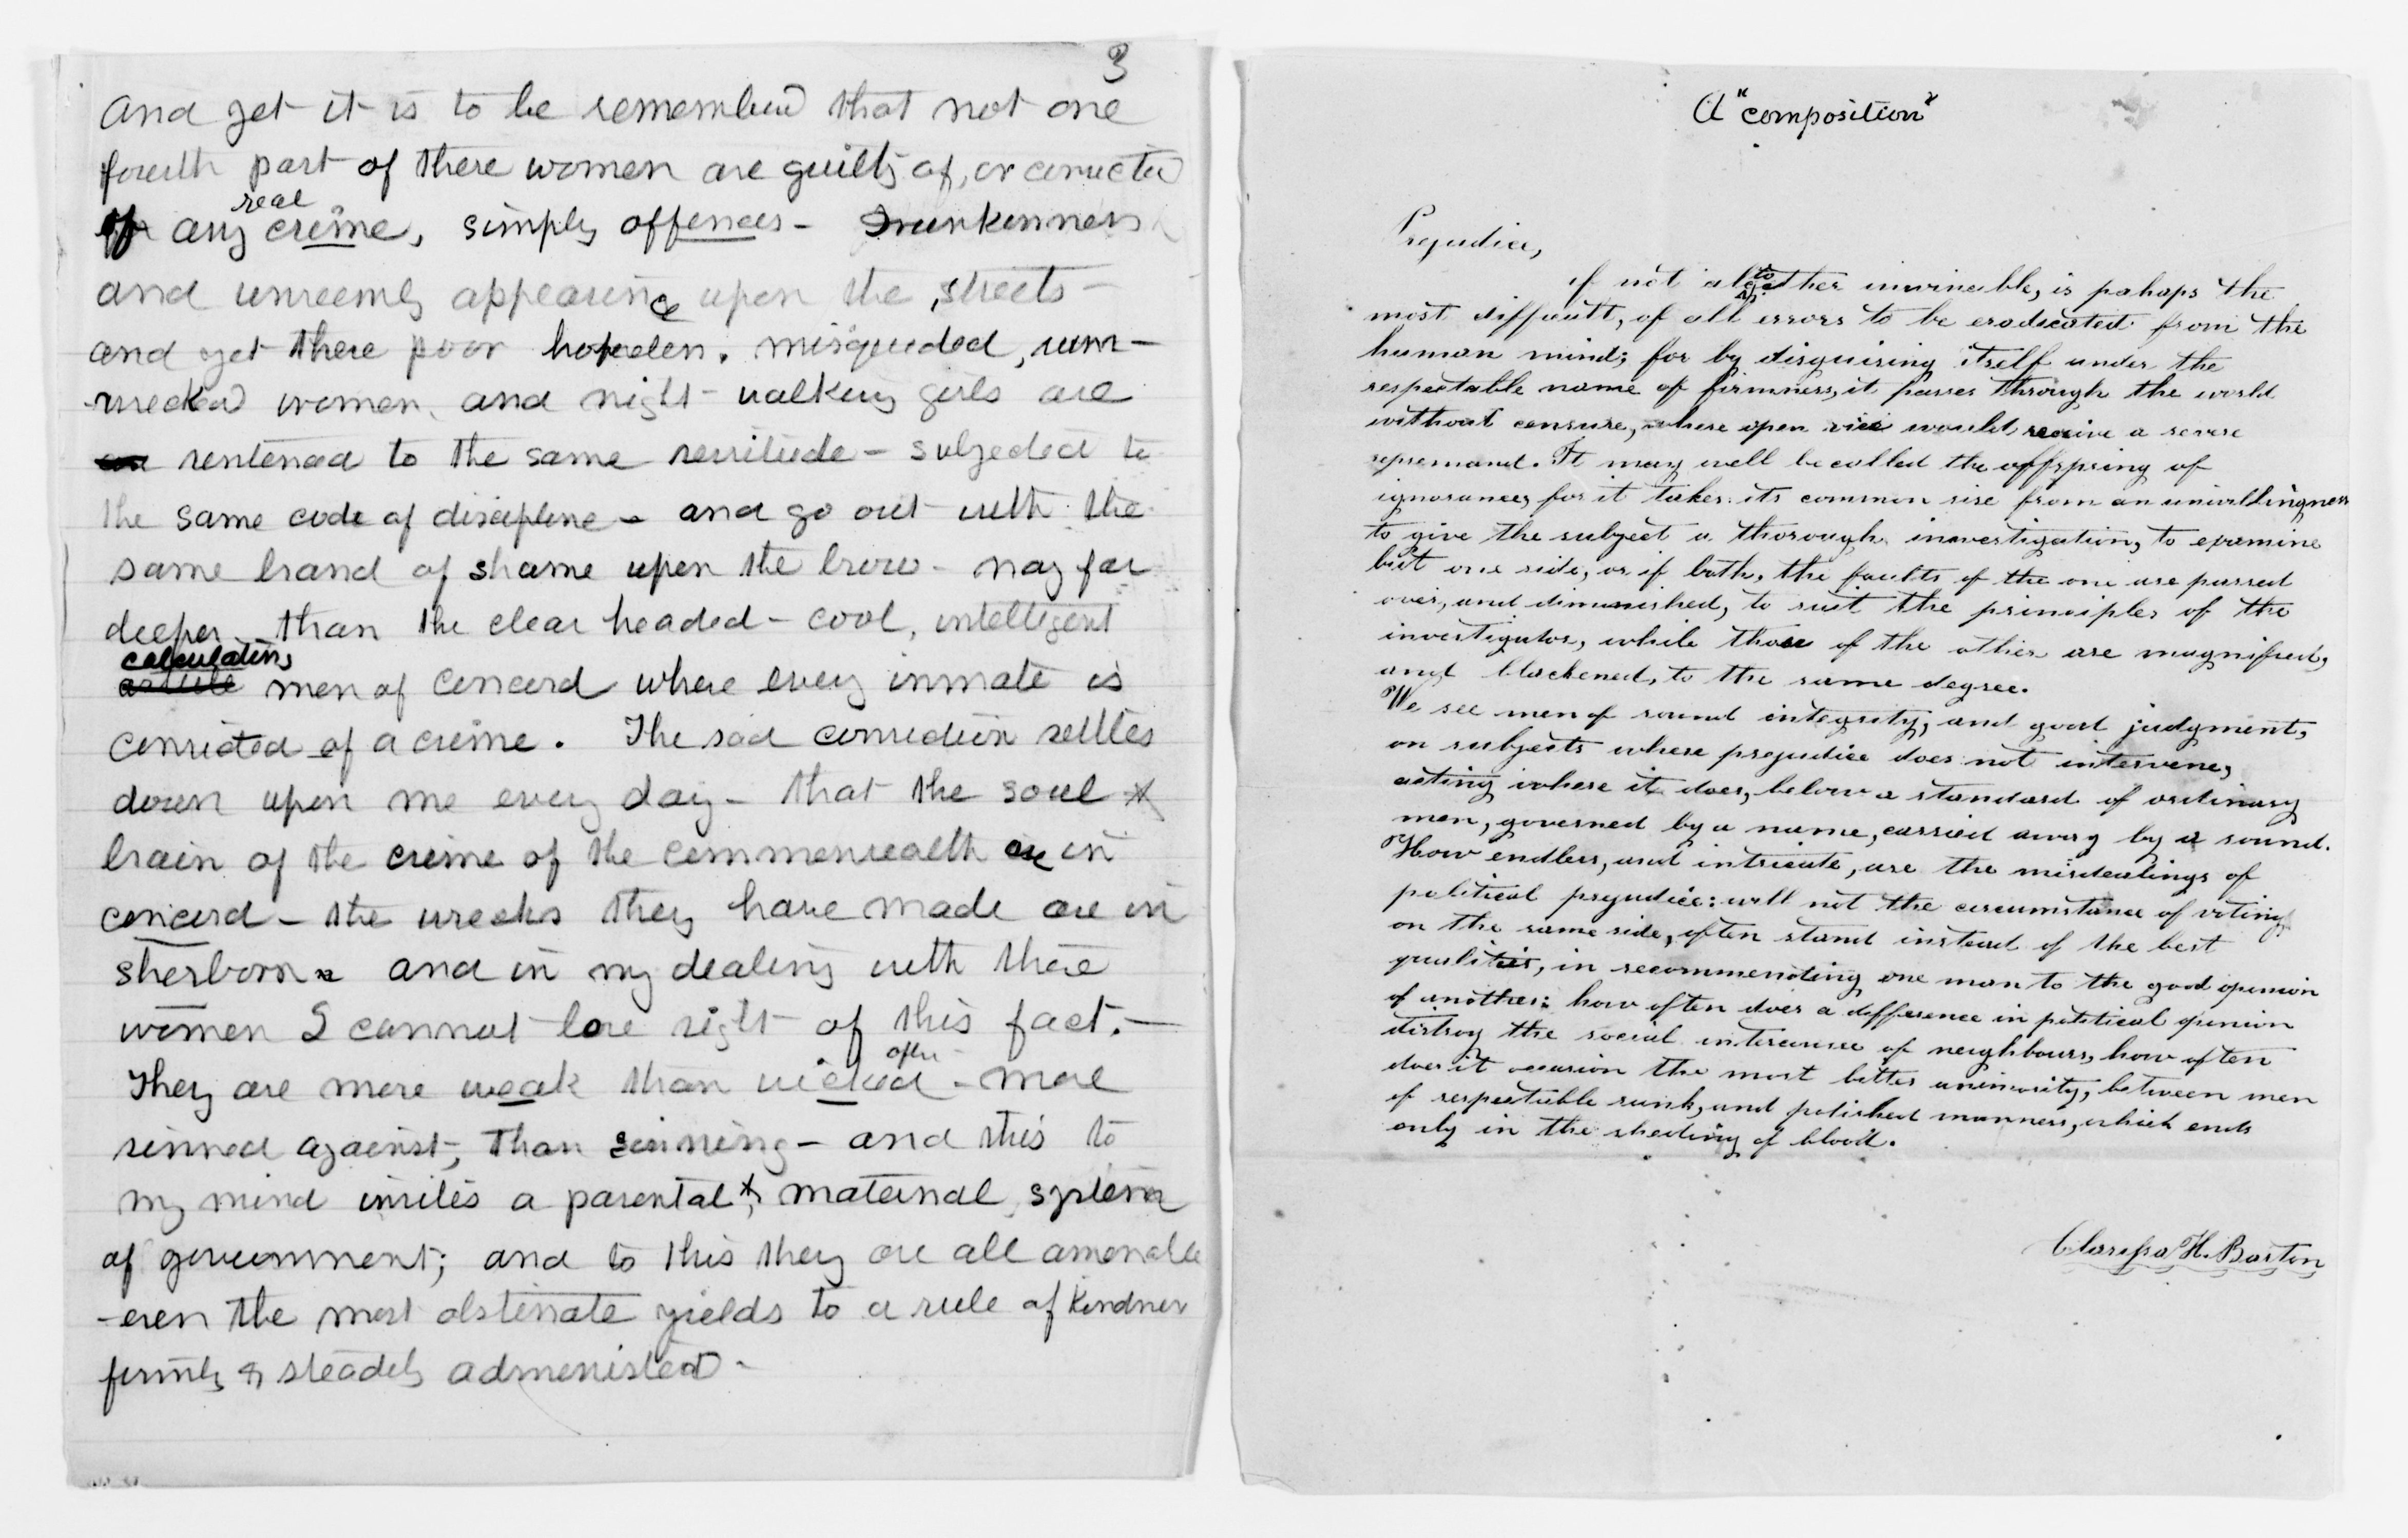 3
and yet it is to be remembered that not one
fourth part of these women are guilty of, or convicted
real
of any crime, simply offences - Drunkenness
and unseemly appearance upon the streets -
and yet these poor hopeless, misguided, rum-
wrecked women, and night-walking girls are
sentenced to the same servitude - subjected to
the same code of discipline - and go out with the
same brand of shame upon the brow - nay far
deeper than the clear headed - cool, intelligent
calculating
astute men of Concord where every inmate is
convicted of a crime. The sad conviction settles
down upon me every day - that the soul &
brain of the crime of the commonwealth are in
Concord - the wrecks they have made are in
Sherborn - and in my dealing with these
women I cannot lose sight of this fact. -
often
They are more weak than wicked - more
sinned against, than sinning - and this to
my mind invites a parental & maternal system
of government; and to this they are all amenable
-even the most obstinate yields to a rule of kindness
firmly & steadily administered -
A "composition"
Prejudice,
if not altogether invincible, is pahaps the
most difficult, of all errors to be eradicated from the
human mind; for by disguising itself under the
respectable name of firmness, it passes through the world
without censure, where open vice would receive a severe
repremand. It may well be called the offspring of
ignorance, for it takes its common rise from an unwillingness
to give the subject a thorough investigation, to examine
but one side, or if both, the faults of the one are passed
over, and diminished, to suit the principles of the
investigator, while those of the other are magnified,
and blackened, to the same degree.
We see men of sound integrity, and good judgment,
on subjects where prejudice does not intervene,
acting where it does, below a standard of ordinary
men, governed by a name, carried away by a sound.
How endless, and intricate, are the misdealings of
political prejudice: will not the circumstance of voting
on the same side, often stand instead of the best
qualities, in recommending one man to the good opinion
of another: how often does a difference in political opinion
distroy the social intercourse of neighbours, how often
does it occasion the most bitter animosity, between men
of respectable rank, and polished manners, which ends
only in the sheding of blood.
Clarissa H. Barton